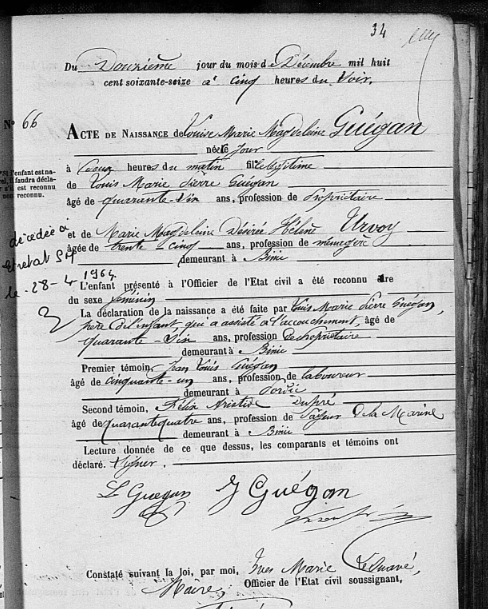 34
Du Douzième jour du mois de Décembre mil huit
cent soixante-seize à cinq heures du soir.
N° 66
ACTE DE NAISSANCE de Louise Marie Magdeleine Guégan
née ce jour
à cinq heures du matin fille légitime
de Louis Marie Pierre Guégan
âgé de quarante six ans, profession de Propriétaire
et de Marie Magdeleine Désirée Hélène Urvoy
âgée de trente-cinq ans, profession de ménagère
demeurant à Binic
décédée à
Etretat S
le 28-4 1964
L'enfant présenté à l'Officier de l'Etat civil a été reconnu être
du sexe féminin
La déclaration de la naissance a été faite par Louis Marie Pierre Guégan,
père de l'enfant qui a assisté à l'accouchement, âgé de
quarante six ans, profession de propriétaire
demeurant à Binic
Premier témoin, Jean Louis Guégan
âgé de cinquante-un ans, profession de laboureur
demeurant à Pordic
Second témoin, Félix Aristide Dupré
âgé de quarante quatre ans, profession de Sapeur de la Marine
demeurant à Binic
Lecture donnée de ce que dessus, les comparants et témoins ont
déclaré. signer.
L Guégan J Guégan
Constaté suivant la loi, par moi, Yves Marie
Maire, Officier de l'Etat civil soussigné,